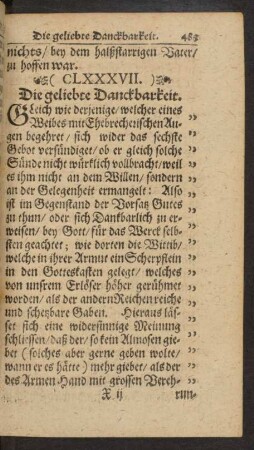 Die geliebte Danckbarkeit. 483
nichts/ bey dem halßstarrigen Vater/
zu hoffen war.
( CLXXXVII. )
Die geliebte Danckbarkeit.
Gleich wie derjenige/ welcher eines „
Weibes mit Ehebrecheꝛischen Au- „
gen begehret/ sich wider das sechste „
Gebot versündiget/ ob er gleich solche „
Sünde nicht würklich vollbracht/ weil „
es ihm nicht an dem Willen/ sondern „
an der Gelegenheit ermangelt: Also „
ist im Gegenstand der Vorsatz Gutes „
zu thun/ oder sich Danckbarlich zu er- „
weisen/ bey Gott/ für das Werck selb- „
sten geachtet; wie dorten die Wittib/ „
welche in ihrer Armut ein Scherpflein „
in den Gotteskasten gelegt/ welches „
von unsrem Erlöser höher gerühmet „
worden/ als der andern Reichen reiche „
und schetzbare Gaben. Hieraus läs- „
set sich eine widersinnige Meinung „
schliessen/ daß der/ so kein Almosen gie- „
bet (solches aber gerne geben wolte/ „
wann er es hätte) mehr giebet/ als der „
des Armen Hand mit grossen Vereh- „
X ij run-